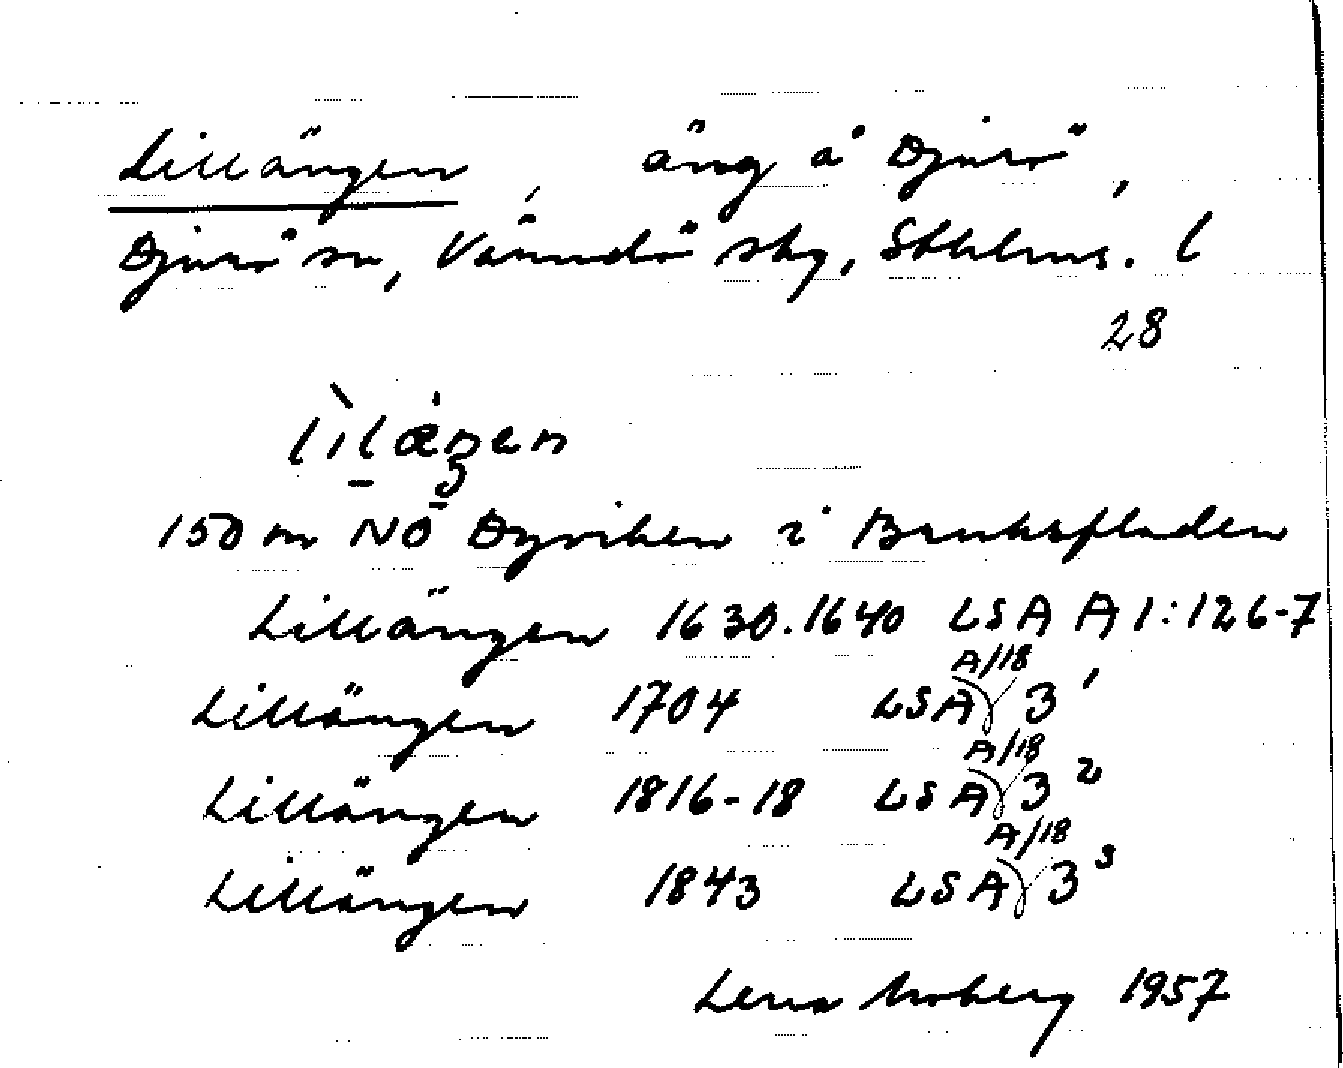 Lillängen, äng å Djurö,
Djurö sn, Värmdö skg, Sthlms. l
28
lìlǽŋen
150 m NO Dyviken i Bruksfladen
Lillängen 1630.1640 LSA A1:126-7
Lillängen 1704 LSA A/18 3 1
Lillängen 1816-18 LSA A/18 3 2
Lillängen 1843 LSA A/18 3 3
Lena Moberg 1957